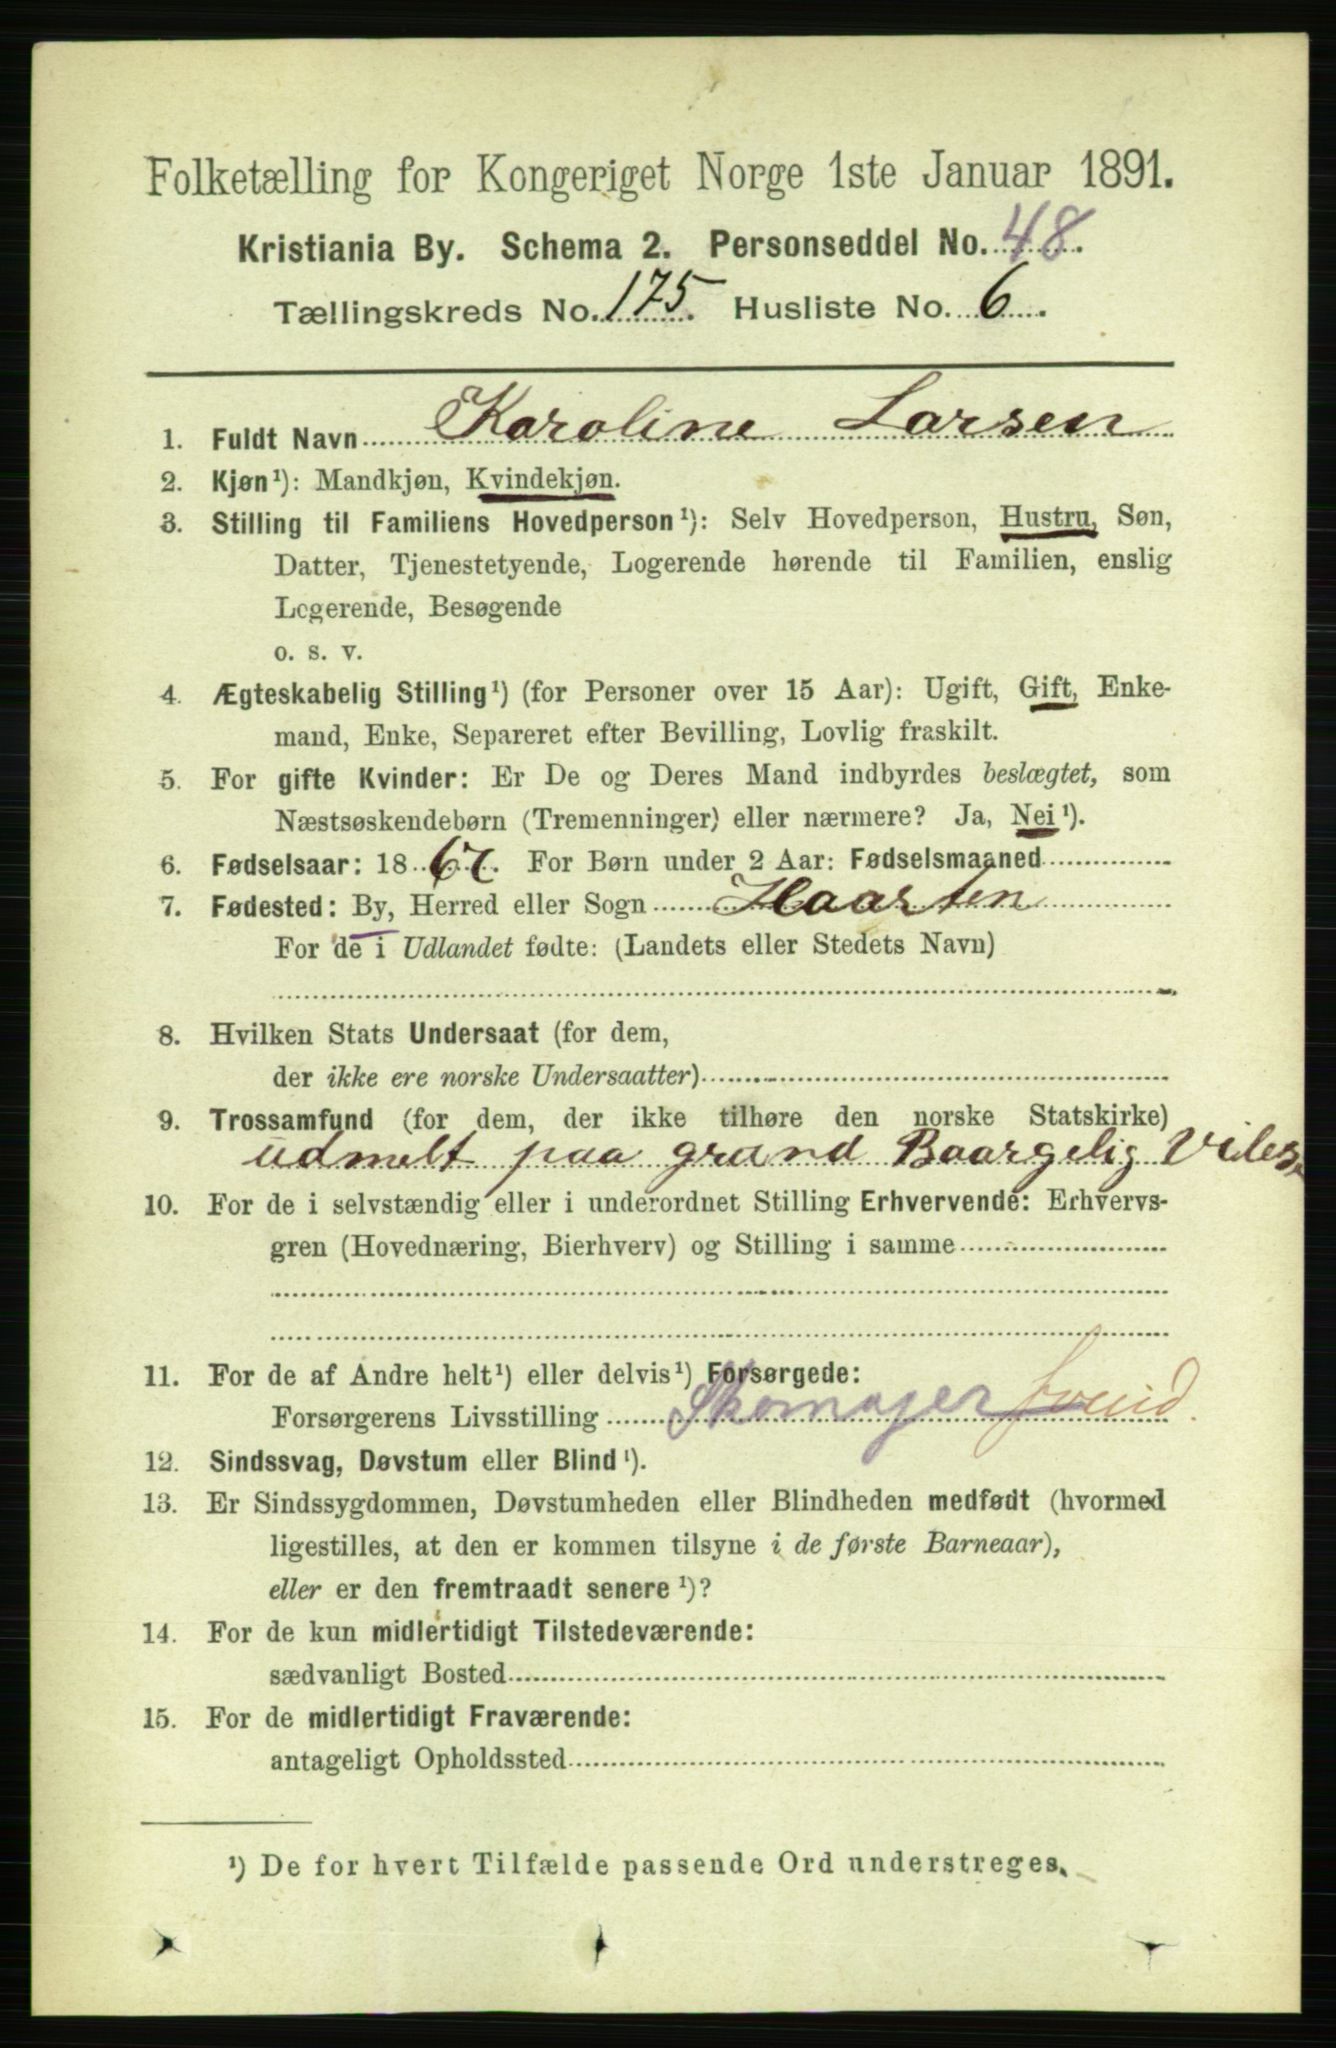 Folketælling for Kongeriget Norge 1ste Januar 1891.
Kristiania By. Schema 2. Personseddel No. 48.
Tællingskreds No. 175. Husliste No. 6.
1. Fuldt Navn Karoline Larsen
2. Kjøn¹): Mandkjøn, Kvindekjøn.
3. Stilling til Familiens Hovedperson¹): Selv Hovedperson, Hustru, Søn,
Datter, Tjenestetyende, Logerende hørende til Familien, enslig
Logerende, Besøgende
o. s. v.
4. Ægteskabelig Stilling¹) (for Personer over 15 Aar): Ugift, Gift, Enke-
mand, Enke, Separeret efter Bevilling, Lovlig fraskilt.
5. For gifte Kvinder: Er De og Deres Mand indbyrdes beslægtet, som
Næstsøskendebørn (Tremenninger) eller nærmere? Ja, Nei¹).
6. Fødselsaar: 1867. For Børn under 2 Aar: Fødselsmaaned
7. Fødested: By, Herred eller Sogn Haarsten
For de i Udlandet fødte: (Landets eller Stedets Navn)
8. Hvilken Stats Undersaat (for dem,
der ikke ere norske Undersaatter)
9. Trossamfund (for dem, der ikke tilhøre den norske Statskirke)
udmelt paa grund Baargelig
10. For de i selvstændig eller i underordnet Stilling Erhvervende: Erhvervs-
gren (Hovednæring, Bierhverv) og Stilling i samme
11. For de af Andre helt¹) eller delvis¹) Forsørgede:
Forsørgerens Livsstilling Skomager
12. Sindssvag, Døvstum eller Blind¹).
13. Er Sindssygdommen, Døvstumheden eller Blindheden medfødt (hvormed
ligestilles, at den er kommen tilsyne i de første Barneaar),
eller er den fremtraadt senere¹)?
14. For de kun midlertidigt Tilstedeværende:
sædvanligt Bosted
15. For de midlertidigt Fraværende:
antageligt Opholdssted
¹) De for hvert Tilfælde passende Ord understreges.